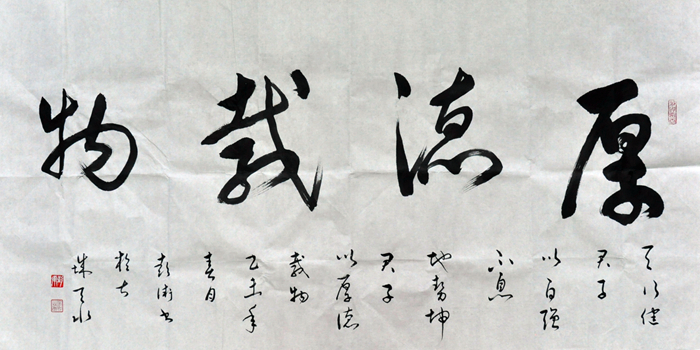 厚德载物
天行健
君子
以自强
不息
地势坤
君子
以厚德
载物
乙未年
春月
彭湘书
于古
城天水